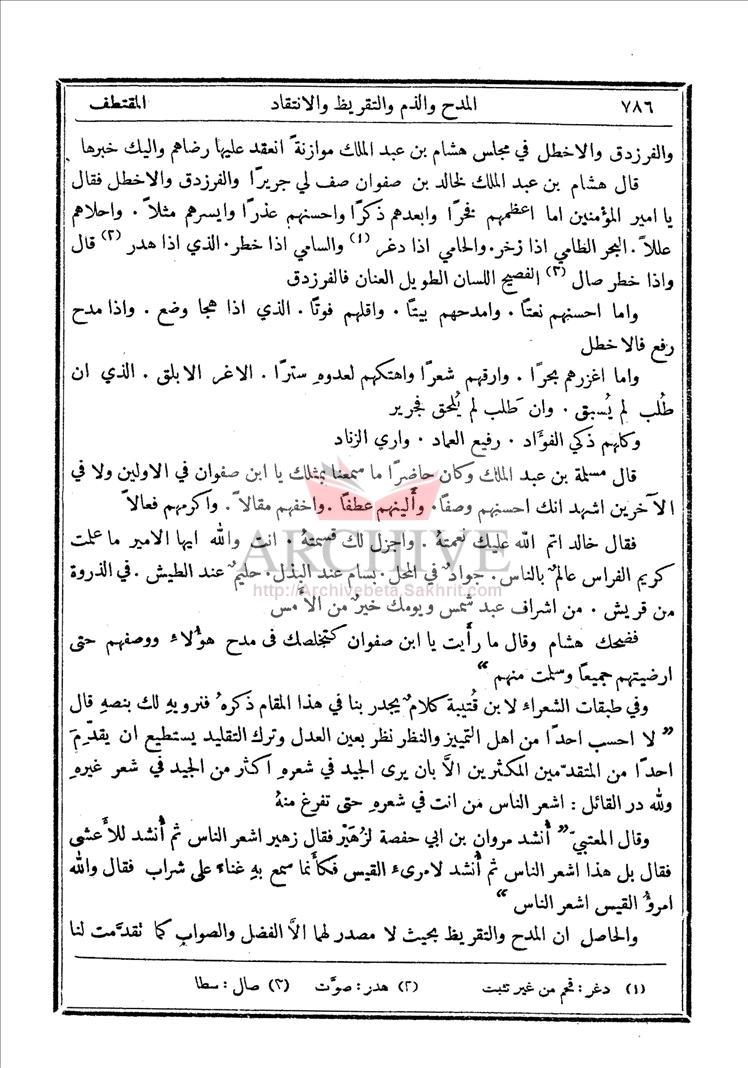 ٧٨٦ المدح والذم والتقريظ والانتقاد المقتطف
والفرزدق والاخطل في مجلس هشام بن عبد الملك موازنةً انعقد عليها رضاهم واليك خبرها
قال هشام بن عبد الملك لخالد بن صفوان صف لي جريرًا والفرزدق والاخطل فقال
يا امير المؤمنين اما اعظمهم فخرًا وابعدهم ذكرًا واحسنهم عذرًا وايسرهم مثلاً. واحلاهم
عللاً. البحر الطامي اذا زخر. والحامي اذا دغر (١) والسامي اذا خطر. الذي اذا هدر (٢) قال
واذا خطر صال (٣) الفصيح اللسان الطويل العنان فالفرزدق
واما احسنهم نعتًا. وامدحهم بيتًا. واقلهم فوتًا. الذي اذا هجا وضع. واذا مدح
رفع فالاخطل
واما اغزرهم بحرًا. وارقهم شعرًا واهتكهم لعدوهِ سترًا. الاغر الابلق. الذي ان
طُلب لم يُسبق. وان طَلب لم يُلحق فجرير
وكلهم ذكي الفؤاد. رفيع العماد. واري الزناد
قال مسلمة بن عبد الملك وكان حاضرًا ما سمعنا بمثلك يا ابن صفوان في الاولين ولا في
الآخرين اشهد انك احسنهم وصفًا. وأَلينهم عطفًا. واخفهم مقالاً. واكرمهم فعالاً
فقال خالد اتم الله عليك نعمتهُ. واجزل لك قسمتهُ. انت والله ايها الامير ما علمت
كريم الفراس عالمٌ بالناس. جوادٌ في المحل. بسام عند البذل. حليمٌ عند الطيش. في الذروة
من قريش. من اشراف عبد شمس ويومك خيرٌ من الأمس
فضحك هشام وقال ما رأيت يا ابن صفوان كتخلصك في مدح هؤلاء ووصفهم حتى
ارضيتهم جميعًا وسلمت منهم"
وفي طبقات الشعراء لابن قُتيبة كلامٌ يجدر بنا في هذا المقام ذكرهُ فنرويهِ لك بنصهِ قال
"لا احسب احدًا من اهل التمييز والنظر نظر بعين العدل وترك التقليد يستطيع ان يقدِّمَ
احدًا من المتقدّمين المكثرين الاَّ بان يرى الجيد في شعرهِ اكثر من الجيد في شعر غيرهِ
ولله در القائل: اشعر الناس مَن انت في شعرهِ حتى تفرغ منهُ
وقال المعتبيّ" أُنشد مروان بن ابي حفصة لزُهَيْر فقال زهير اشعر الناس ثم أُنشد للأعشى
فقال بل هذا اشعر الناس ثم أُنشد لامرىء القيس فكأَنما سمع بهِ غناءً على شراب فقال والله
امرؤُ القيس اشعر الناس"
والحاصل ان المدح والتقريظ بحيث لا مصدر لهما الاَّ الفضل والصواب كما تقدَّمت لنا
(١) دغر: قحم من غير تثبت (٢) هدر: صوَّت (٣) صال: سطا
ARCHIVE
http://Archivebeta.Sakhrit.com